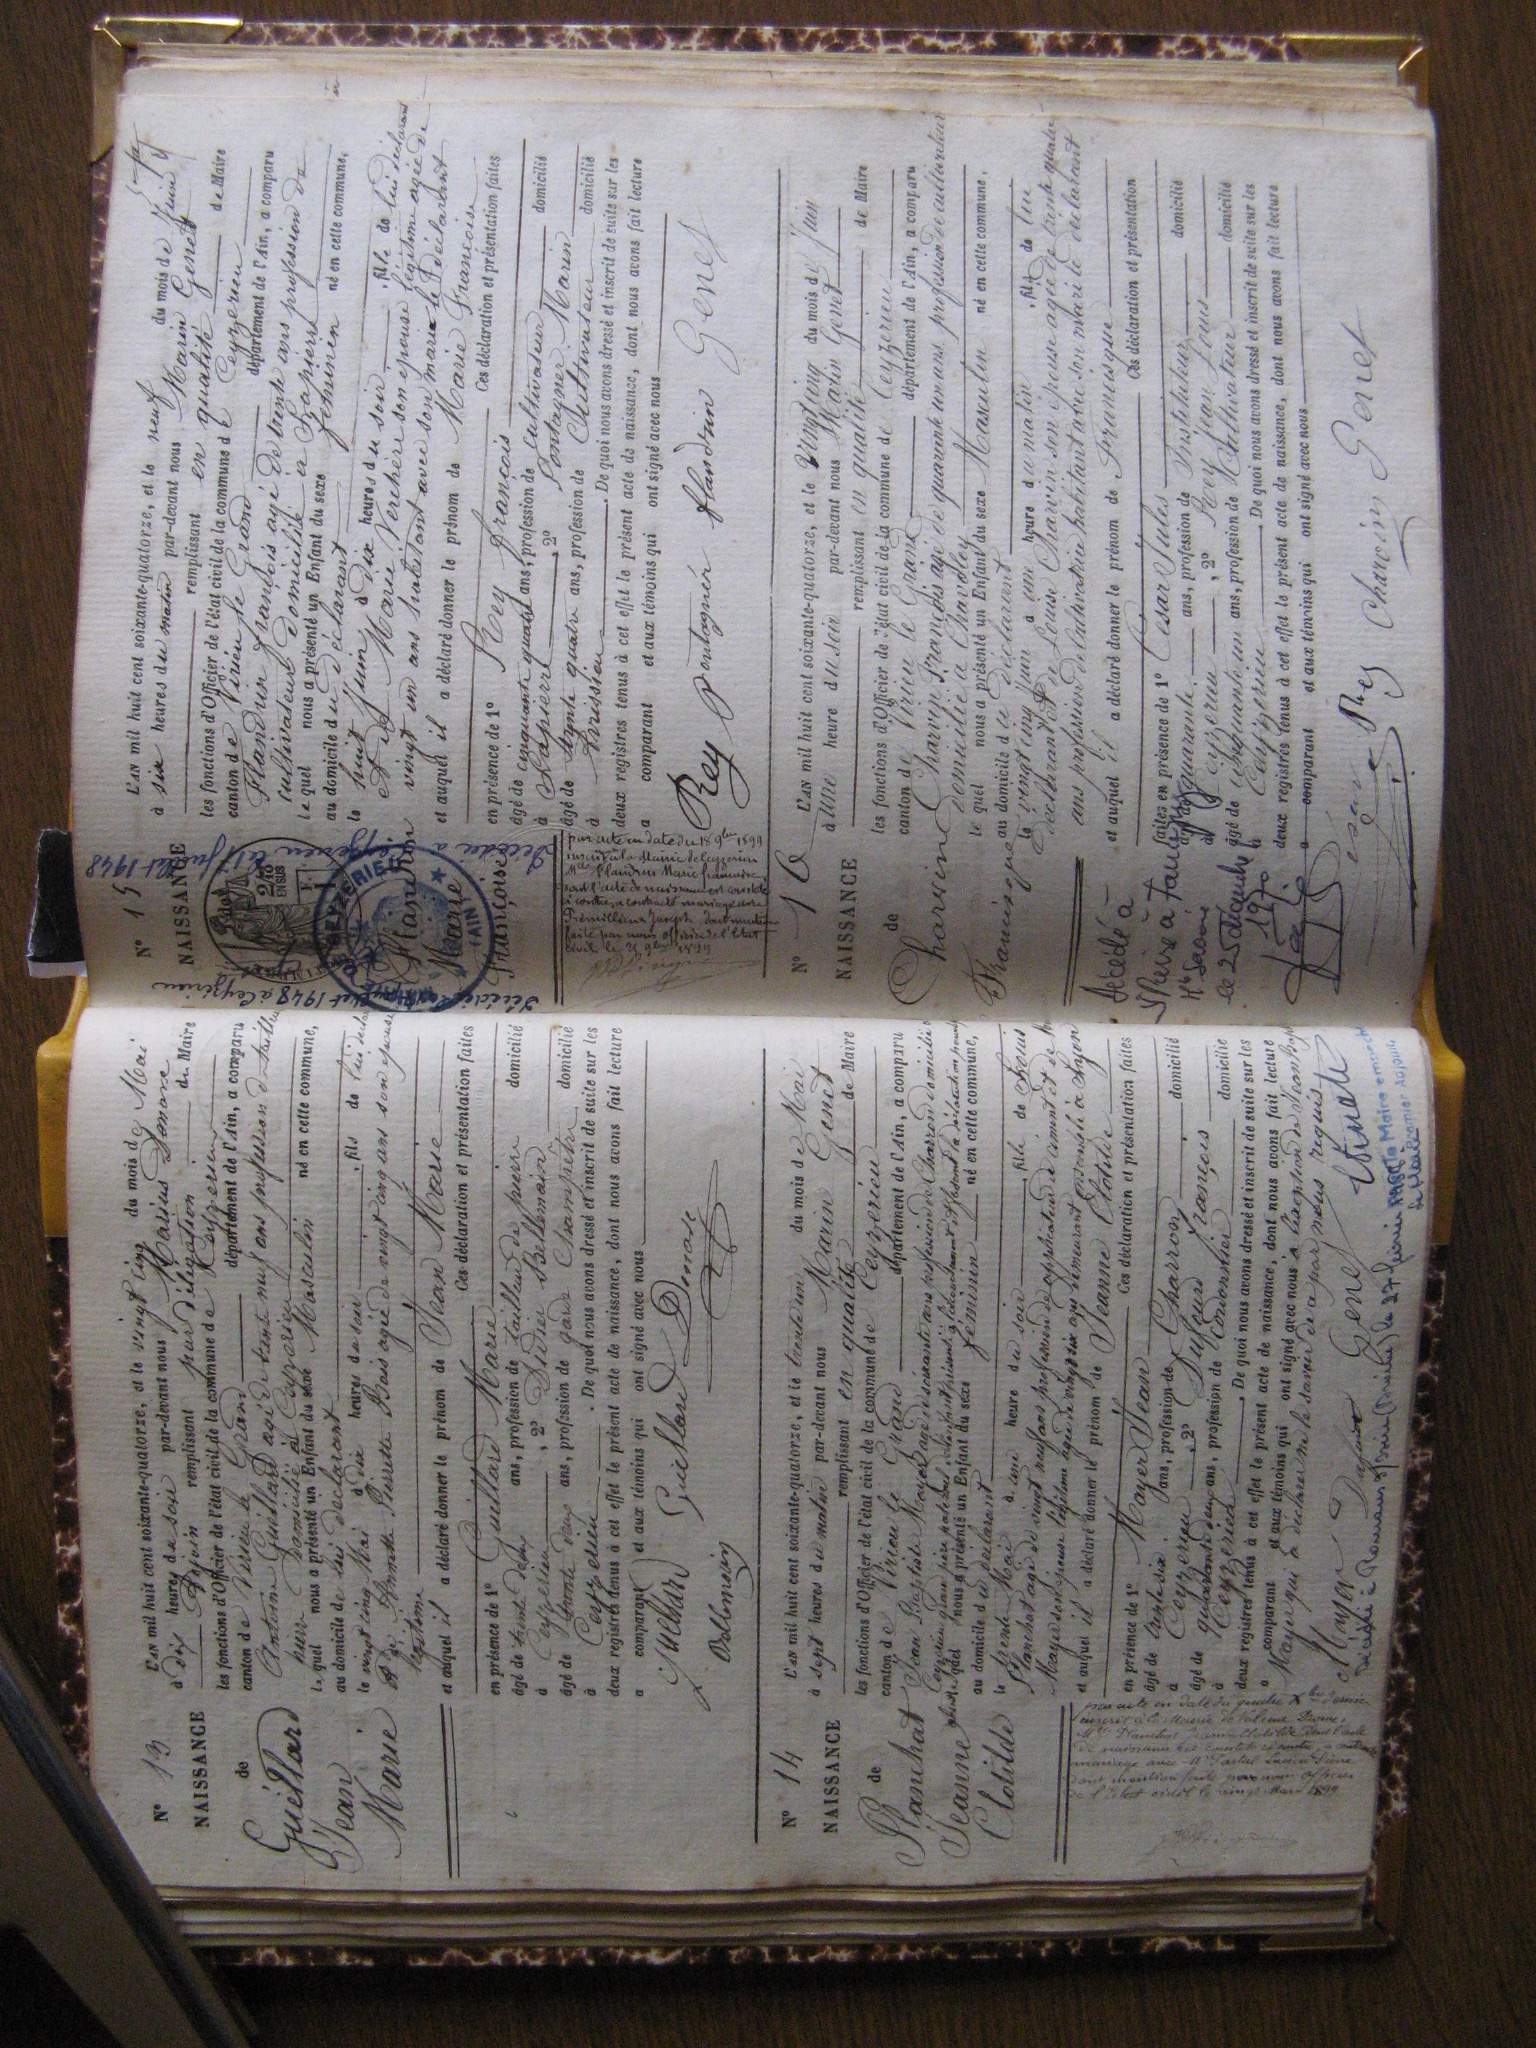 N° 13
NAISSANCE
de
Guillard
Jean
Marie
L'AN mil huit cent soixante-quatorze, et le vingt cinq du mois de Mai
à dix heures du soir par-devant nous Marius Dumare
Adjoint remplissant par délégation de Maire
les fonctions d'Officier de l'état civil de la commune de Ceyzerieu
canton de Virieu le Grand département de l'Ain, a comparu
Antoine Guillard agé de trente neuf ans profession de tailleur
pierre domicilié à Ceyzerieu
Lequel nous a présenté un Enfant du sexe Masculin né en cette commune,
au domicile de lui déclarant
le vingt cinq Mai à dix heures du soir fils de lui déclarant
et de Pierrette Bois agée de vingt cinq ans son épouse
légitime
et auquel il a déclaré donner le prénom de Jean Marie
Ces déclaration et présentation faites
en présence de 1° Guillard Marie
âgé de trente deux ans, profession de tailleur de pierre domicilié
à Ceyzerieu, 2° Didier Bellemain
âgé de trente deux ans, profession de garde champêtre domicilié
à Ceyzerieu. De quoi nous avons dressé et inscrit de suite sur les
deux registres tenus à cet effet le présent acte de naissance, dont nous avons fait lecture
a comparant et aux témoins qui ont signé avec nous
Guillard Guillard
N° 14
NAISSANCE
de
Planchat
Jeanne
Clotilde
L'AN mil huit cent soixante-quatorze, et le trente un du mois de Mai
à sept heures du matin par-devant nous Marin Genet
remplissant en qualité de Maire
les fonctions d'Officier de l'état civil de la commune de Ceyzerieu
canton de Virieu le Grand département de l'Ain, a comparu
Jean Baptiste Mayer agé de soixante ans profession de Charron domicilié à
lequel nous a présenté un Enfant du sexe féminin né en cette commune,
au domicile du déclarant
le trente Mai à une heure du soir fille de Louis
Planchat agé de vingt neuf ans profession de
Mayer son épouse légitime agée de vingt six ans demeurant ensemble à Lyon
et auquel il a déclaré donner le prénom de Jeanne Clotilde
Ces déclaration et présentation faites
en présence de 1° Mayer Jean
âgé de trente six ans, profession de Charron domicilié
à Ceyzerieu, 2° Dufour François
âgé de quarante deux ans, profession de Cordonnier domicilié
à Ceyzerieu. De quoi nous avons dressé et inscrit de suite sur les
deux registres tenus à cet effet le présent acte de naissance, dont nous avons fait lecture
a comparant et aux témoins qui ont signé avec nous à l'exception de Jean
Mayer qui a déclaré ne le savoir de ce par nous requis
Mayer Dufour Genet
Décédée à Romans le 27 février
N° 15
NAISSANCE
Flandrin
Marie
Françoise
Décédée à Ceyzerieu le 1 Juillet 1948
L'AN mil huit cent soixante-quatorze, et le neuf du mois de Juin
à six heures du matin par-devant nous Marin Genet
remplissant en qualité de Maire
les fonctions d'Officier de l'état civil de la commune de Ceyzerieu
canton de Virieu le Grand département de l'Ain, a comparu
Flandrin François agé de trente ans profession de
cultivateur domicilié à Lapierre
Lequel nous a présenté un Enfant du sexe féminin né en cette commune,
au domicile du déclarant
le huit Juin à dix heures du soir fille de lui déclarant
et de Marie Verchère son épouse légitime agée de
vingt un ans habitant avec son mari le déclarant
et auquel il a déclaré donner le prénom de Marie Françoise
Ces déclaration et présentation faites
en présence de 1° Rey François
âgé de cinquante quatre ans, profession de Cultivateur domicilié
à Lapierre, 2° Pontagner Marin
âgé de trente quatre ans, profession de Cultivateur domicilié
à Avrissieu. De quoi nous avons dressé et inscrit de suite sur les
deux registres tenus à cet effet le présent acte de naissance, dont nous avons fait lecture
a comparant et aux témoins qui ont signé avec nous
Rey Pontagnier Flandrin Genet
par acte en date du 18 9bre 1899
inscrit à la Mairie de Ceyzerieu
Melle Flandrin Marie Françoise,
dont l'acte de naissance est constaté
ci contre, a contracté mariage avec
Joseph, dont mention
faite par nous officier de l'Etat
civil le 25 9bre 1899
N° 16
NAISSANCE
de
Charvin
Franscisque
L'AN mil huit cent soixante-quatorze, et le Vingt cinq du mois de Juin
à une heure du soir par-devant nous Marin Genet
remplissant en qualité de Maire
les fonctions d'Officier de l'état civil de la commune de Ceyzerieu
canton de Virieu le Grand département de l'Ain, a comparu
Charvin François agé de quarante un ans, profession de cultivateur
domicilié à Chavoley
Lequel nous a présenté un Enfant du sexe Masculin né en cette commune,
au domicile du déclarant
le vingt cinq Juin à une heure du matin fils de lui
déclarant et de Louise Charvin son épouse agée de trente quatre
ans profession de Cultivatrice habitant avec son mari le déclarant
et auquel il a déclaré donner le prénom de Franscisque
Ces déclaration et présentation
faites en présence de 1° César Jules
âgé de quarante ans, profession de Instituteur domicilié
à Ceyzerieu, 2° Rey Jean Louis
âgé de cinquante un ans, profession de Cultivateur domicilié
à Ceyzerieu. De quoi nous avons dressé et inscrit de suite sur les
deux registres tenus à cet effet le présent acte de naissance, dont nous avons fait lecture
a comparant et aux témoins qui ont signé avec nous
César Rey Charvin Genet
Décédé à
Hte Savoie
le 25 décembre